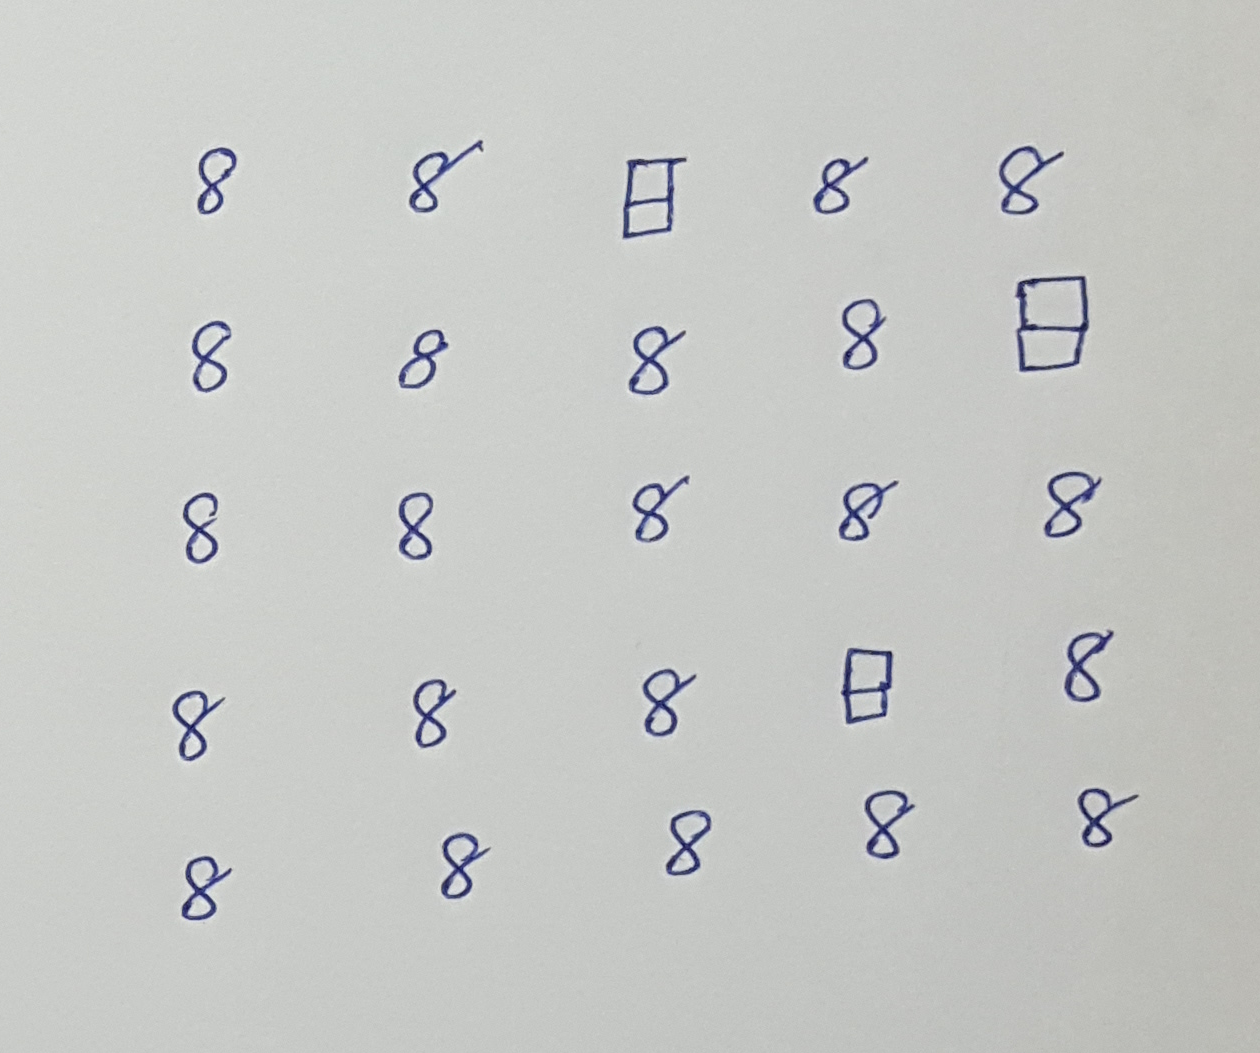 8 8 8 8 8
8 8 8 8 8
8 8 8 8 8
8 8 8 8 8
8 8 8 8 8